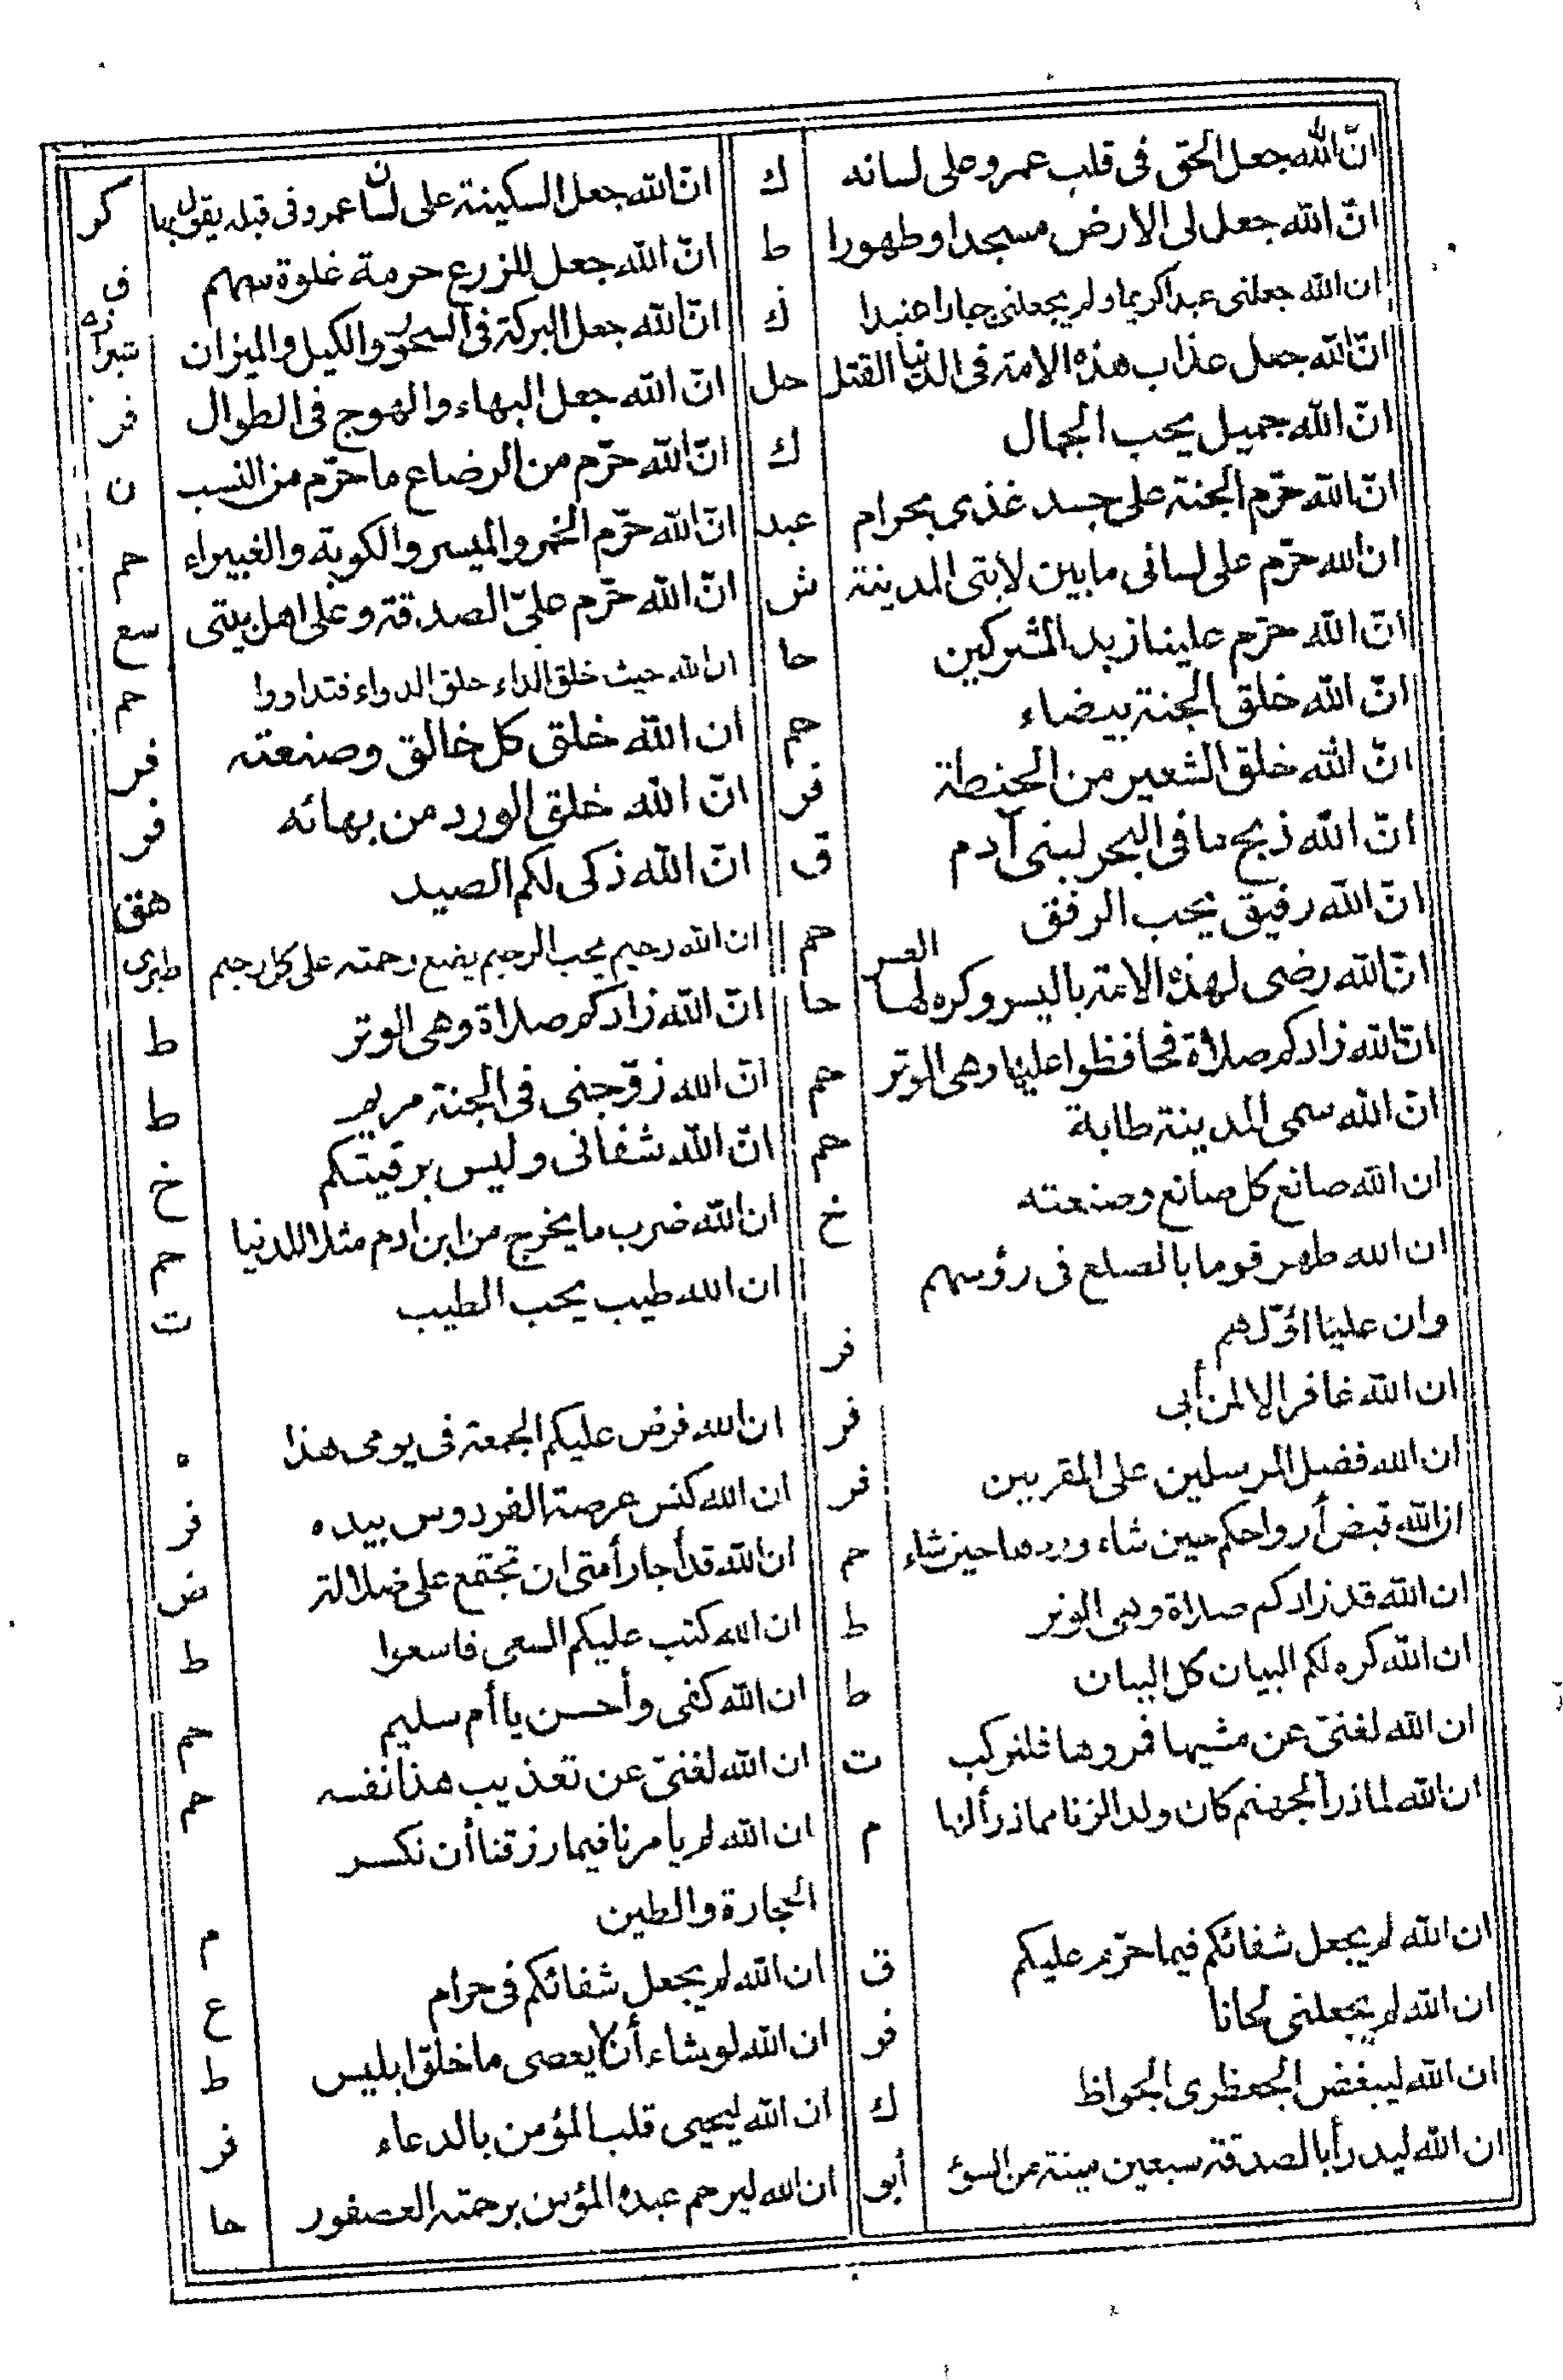 انّ الله جعل الحق فى قلب عمر وعلى لسانه ك
انّ الله جعل لى الارض مسجدا وطهورا ط
ان الله جعلنى عبدا كريما ولم يجعلنى جبارا عنيدا ك
انّ الله جعل عذاب هذه الامة فى الدنيا القتل حل
انّ الله جميل يحب الجمال ك
انّ الله حرّم الجنة على جسد غذى بحرام عبد
ان الله حرّم على لسانى ما بين لابتى المدينة ش
انّ الله حرّم علينا زبد المشركين حا
انّ الله خلق الجنة بيضاء حم
انّ الله خلق الشعير من الحنطة فر
انّ الله ذبح ما فى البحر لبنى آدم ق
انّ الله رفيق يحب الرفق حم
انّ الله رضى لهذه الامة باليسر وكره لها العسر حا
انّ الله زادكم صلاة فحافظوا عليها وهى الوتر حم
انّ الله سمى المدينة طابة حم
ان الله صانع كل صانع وصنعته خ
ان الله طهر قوما بالصلع فى رؤسهم
وان عليا اوّلهم فر
ان الله غافر الا لمن أبى فر
ان الله فضل المرسلين على المقربين فر
ان الله قبض أرواحكم حين شاء وردها حين شاء حم
ان الله قد زادكم صلاة وهى الوتر ط
ان الله كره لكم البيان كل البيان ط
ان الله لغنىّ عن مشيها فمروها فلتركب ت
ان الله لما ذرأ لجهنم كان ولد الزنا مما ذرأ لها م
ان الله لم يجعل شفائكم فيما حرّم عليكم ق
ان الله لم يجعلنى لحانا فر
ان الله ليبغض الجعظرى الجواظ ك
ان الله ليدرأ بالصدقة سبعين ميتة من السوء أبو
انّ الله جعل السكينة على لسان عمر وفى قبله يقول بها كر
انّ الله جعل للزرع حرمة غلوة سهم ق
انّ الله جعل البركة فى السحور والكيل والميزان شيرازه
انّ الله جعل البهاء والهوج فى الطوال فر
انّ الله حرّم من الرضاع ما حرّم من النسب ن
انّ الله حرّم الخمر والميسر والكوبة والغبيراء حم
انّ الله حرّم علىّ الصدقة وعلى اهل بيتى سع
ان الله حيث خلق الداء خلق الدواء فتداووا حم
ان الله خلق كل خالق وصنعته فر
انّ الله خلق الورد من بهائه فر
انّ الله ذكى لكم الصيد هق
ان الله رحيم يحب الرحيم يضع رحمته على كل رحيم طبرى
انّ الله زادكم صلاة وهى الوتر ط
انّ الله زوّجنى فى الجنة مريم ط
انّ الله شفانى وليس برقيتكم خ
ان الله ضرب ما يخرج من ابن ادم مثلا للدنيا حم
ان الله طيب يحب الطيب ت
ان الله فرض عليكم الجمعة فى يومى هذا ه
ان الله كنس عرصة الفردوس بيده فر
ان الله قد أجار أمتى ان تجتمع على ضلالة ض
ان الله كتب عليكم السعى فاسعوا ط
ان الله كفى وأحسن يا أم سليم حم
ان الله لغنىّ عن تعذيب هذا نفسه حم
ان الله لم يأمرنا فيما رزقنا أن نكسر
الحجارة والطين م
ان الله لم يجعل شفائكم فى حرام ع
ان الله لو يشاء أن لا يعصى ما خلق ابليس ط
ان الله ليحيى قلب المؤمن بالدعاء فر
ان الله ليرحم عبده المؤمن برحمته العصفور حا